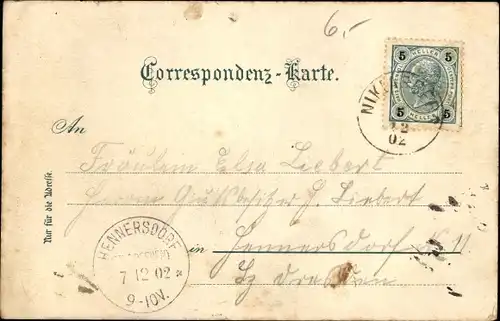 6.-
5 HELLER 5
5 HELLER 5
Correspondenz-Karte.
NIK
12
02
An
Fräulein Elsa Liebert
Herrn Gutsbesitzer H. Liebert
in Hennersdorf
Bz Dresden
Nur für die Adresse.
HENNERSDORF
7 12 02 *
9-10V.